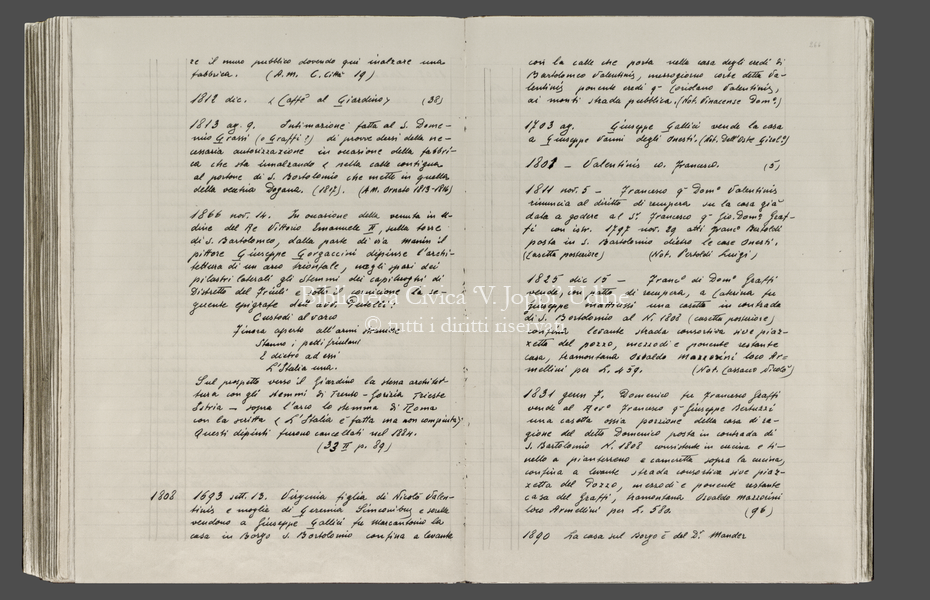 re il muro pubblico dovendo qui inalzare una
fabbrica. (A.m. C. Città 19)
1812 dic. (Caffè al Giardino) (38)
1813 ag. 9. Intimazione fatta al S. Dome-
nico Grassi (o Graffi?) di provvedersi della ne-
cessaria autorizzazione in occasione della fabbri-
ca che sta innalzando e nella calle contigua
al portone di S. Bortolomio che mette in quella
della vecchia Dogana. (1817). (A.m. Ornato 1813-1816)
1866 nov. 14. In occasione della venuta in U-
dine del Re Vittorio Emanuele II, sulla torre
di S. Bartolomeo, dalla parte di via Manin il
pittore Giuseppe Gorgaccini dipinse l'archi-
tettura di un arco trionfale, negli spazi dei
pilastri laterali gli stemmi dei capiluoghi di
Distretto del Friuli. Sotto il cornicione la se-
guente epigrafe
Custodi al varco
Finora aperto all'armi
Stanno i petti friulani
E dietro ad essi
L'Italia una.
Sul prospetto verso il Giardino la stessa architet-
tura con gli stemmi di Trento - Gorizia Trieste
Istria — sopra l'arco lo stemma di Roma
con la scritta (L'Italia è fatta ma non compiuta)
Questi dipinti furono cancellati nel 1884.
(33 II p. 89)
1808 1693 sett. 13. Virginia figlia di Nicolò Valen-
tinis e moglie di Geremia Simeonibus e sorelle
vendono a Giuseppe Gallici fu Marcantonio la
casa in Borgo S. Bortolomio confina a levante
con la calle che porta nella casa degli eredi di
Bartolomeo Valentinis, mezzogiorno corte detta Va-
lentinis ponente eredi q. Coriolano Valentinis,
ai monti strada pubblica. (Not. Vinacense Dom.º)
1703 ag. Giuseppe Gallici vende la casa
a Giuseppe Vanni degli Onesti. (Not. Dell'Oste Girol.º)
1801 — Valentinis co. Francesco. (5)
1811 nov. 5 — Francesco q. Dom.º Valentinis
rinuncia al diritto di recupera su la casa già
data a godere al S.r Francesco q. Gio. Dom.º Graf-
fi con istr. 1797 nov. 29 atti Franc.º Bertoldi
posta in S. Bortolomio dietro le case Onesti.
(Casetta posteriore) (Not. Pertoldi Luigi)
1825 dic 15 — Franc.º di Dom.º Graffi
vende con patto di recupera, a Caterina fu
Giuseppe Mattiussi una casetta in contrada
di S. Bortolomio al N. 1808 (casetta posteriore)
confina levante strada consortiva sive piaz-
zetta del pozzo, mezzodì e ponente restante
casa, tramontana Osvaldo Mazzorini loco Ar-
mellini per L. 459. (Not. Cassacco Nicolò)
1831 genn 7. Domenico fu Francesco Graffi
vende al Rev.º Francesco q. Giuseppe Bertuzzi
una casetta ossia porzione della casa di ra-
gione del detto Domenico posta in contrada di
S. Bortolomio N. 1808 consistente in cucina e ti-
nello a pianterreno e cameretta sopra la cucina,
confina a levante strada consortiva sive piaz-
zetta del Pozzo, mezzodì e ponente restante
casa del Graffi, tramontana Osvaldo Mazzorini
loco Armellini per L. 580. (96)
1890 La casa sul Borgo è del D.r Mander
Biblioteca Civica 'V. Joppi' Udine
© tutti i diritti riservati